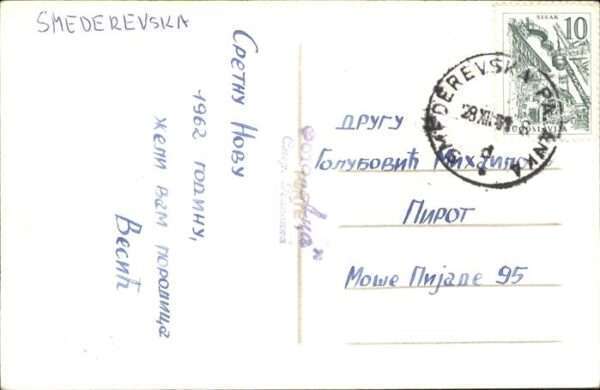 SMEDEREVSKA
Сретну Нову
1962 годину,
жели вам породица
Весић
SISAK
10
JUGOSLAVIJA
SMEDEREVSKA PALANKA
28 XII 61
ДРУГУ
Голубовић Михаило
Пирот
Моше Пијаде 95